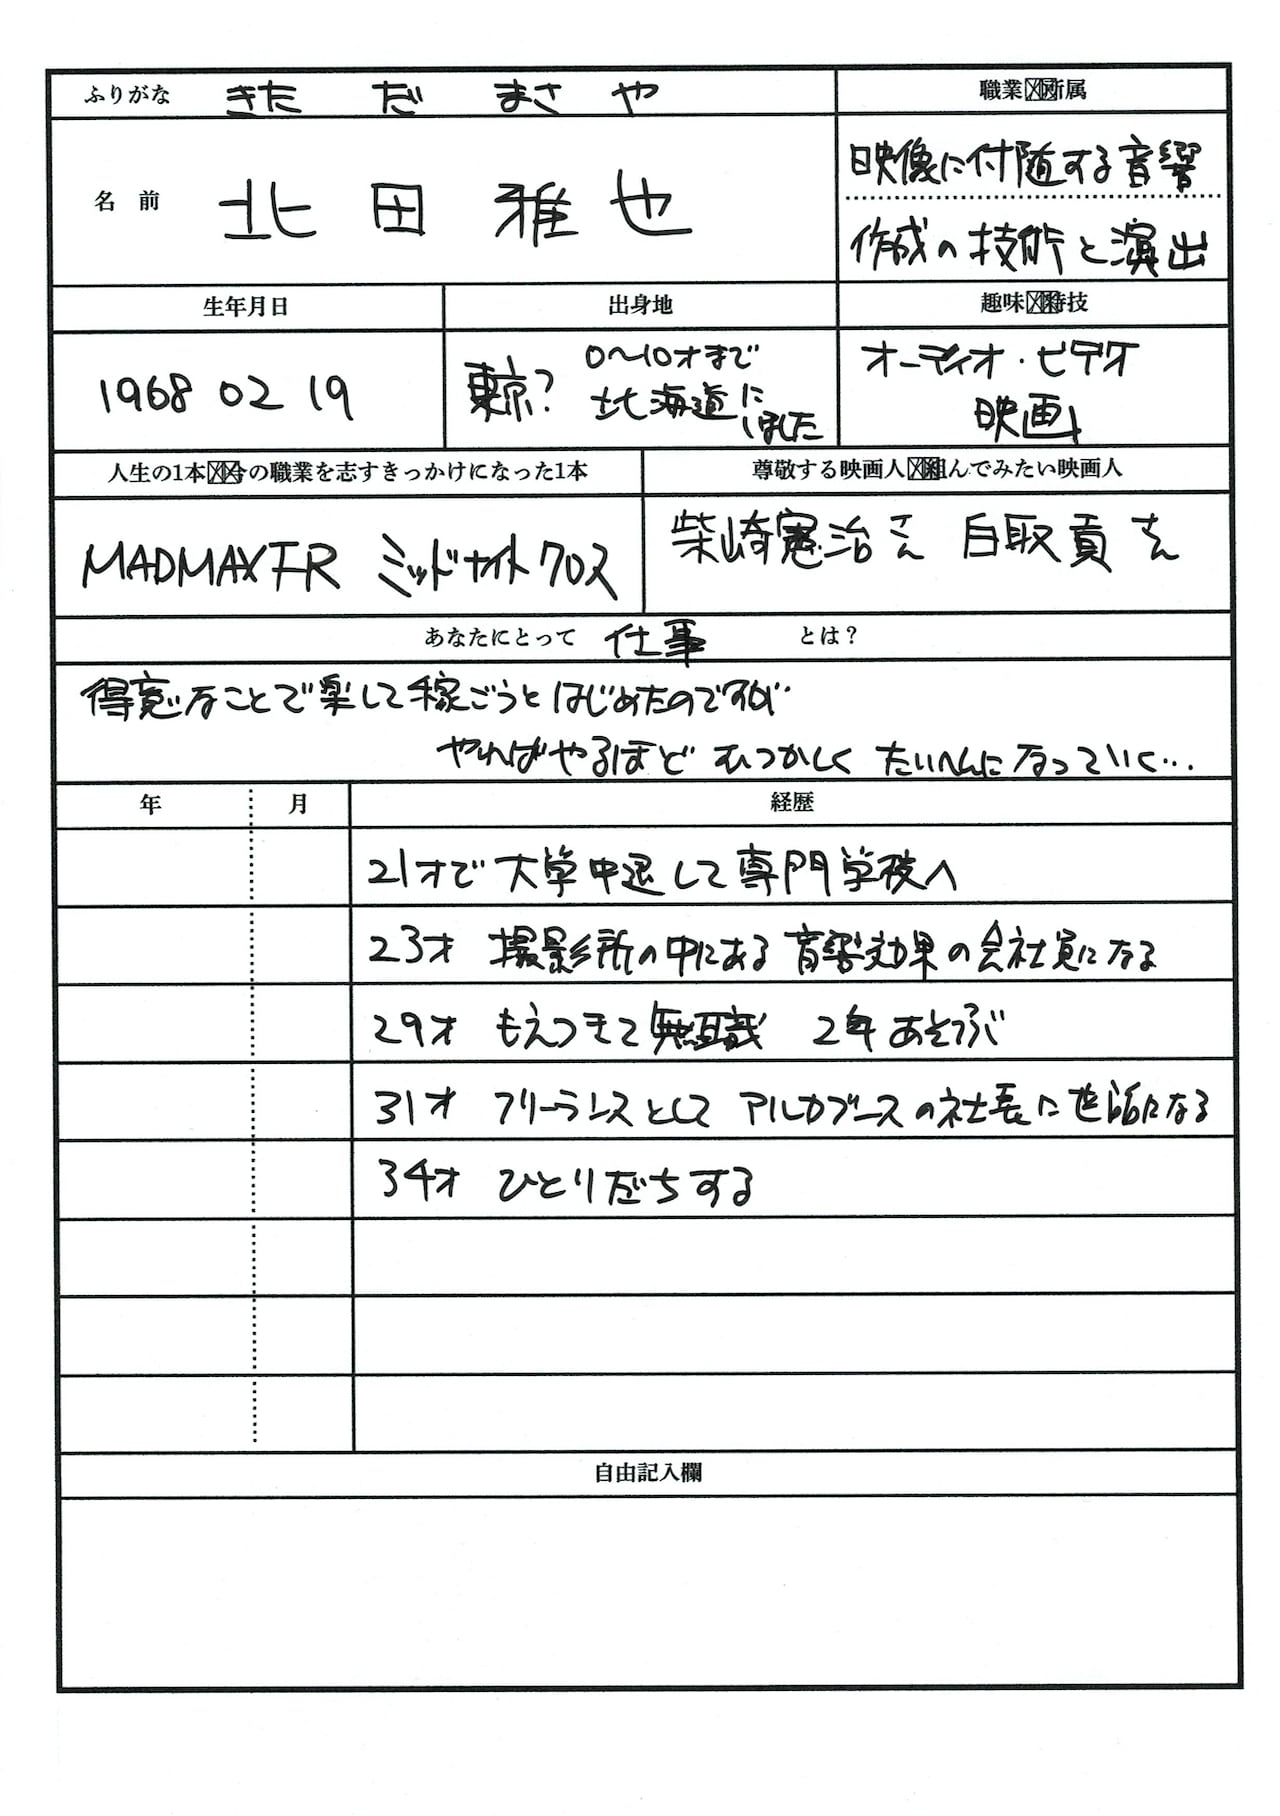 ふりがな きた だ まさ や
職業 所属
名 前 北 田 雅 也
映像に付随する音響
作成の技術と演出
生年月日 出身地 趣味 特技
1968 02 19
東京? 0〜10才まで
北海道に
いました
オーディオ・ビデオ
映画
人生の1本 今の職業を志すきっかけになった1本
尊敬する映画人 組んでみたい映画人
MADMAX FR ミッドナイトクロス
柴崎憲治さん 白取貢さん
あなたにとって 仕事 とは?
得意なことで楽して稼ごうとはじめたのですが
やればやるほど むつかしく たいへんになっていく…
年 月 経歴
21才で大学中退して専門学校へ
23才 撮影所の中にある音響効果の会社員になる
29才 もえつきて無職 2年あそぶ
31才 フリーランスとして アルカブースの社長に世話になる
34才 ひとりだちする
自由記入欄